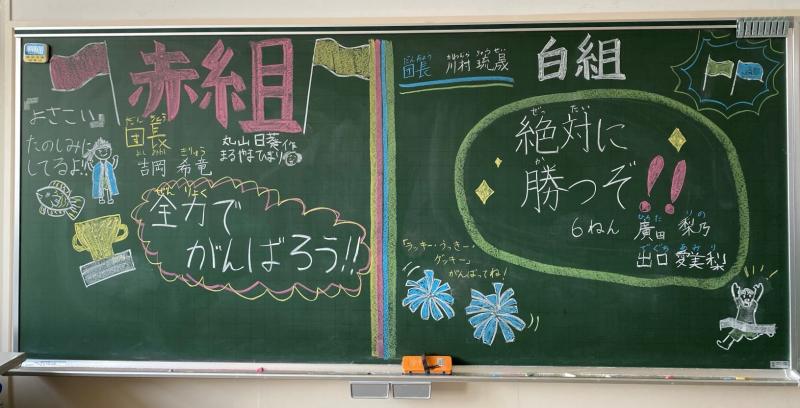 赤組
『よさこい』
たのしみに
してるよ!!
だんちょう
団長
よしおか きりゅう
吉岡 希竜
丸山 日葵 作
まるやまひまり
ぜんりょく
全力で
がんばろう!!
だんちょう かわむら りゅうせい
団長 川村 琉晟
白組
ぜったい
絶対に
か
勝つぞ!!
6ねん
ひろた りの
廣田 梨乃
でぐち あみり
出口 愛美梨
「ラッキー・うっきー・
ゲッキー」
がんばってね!